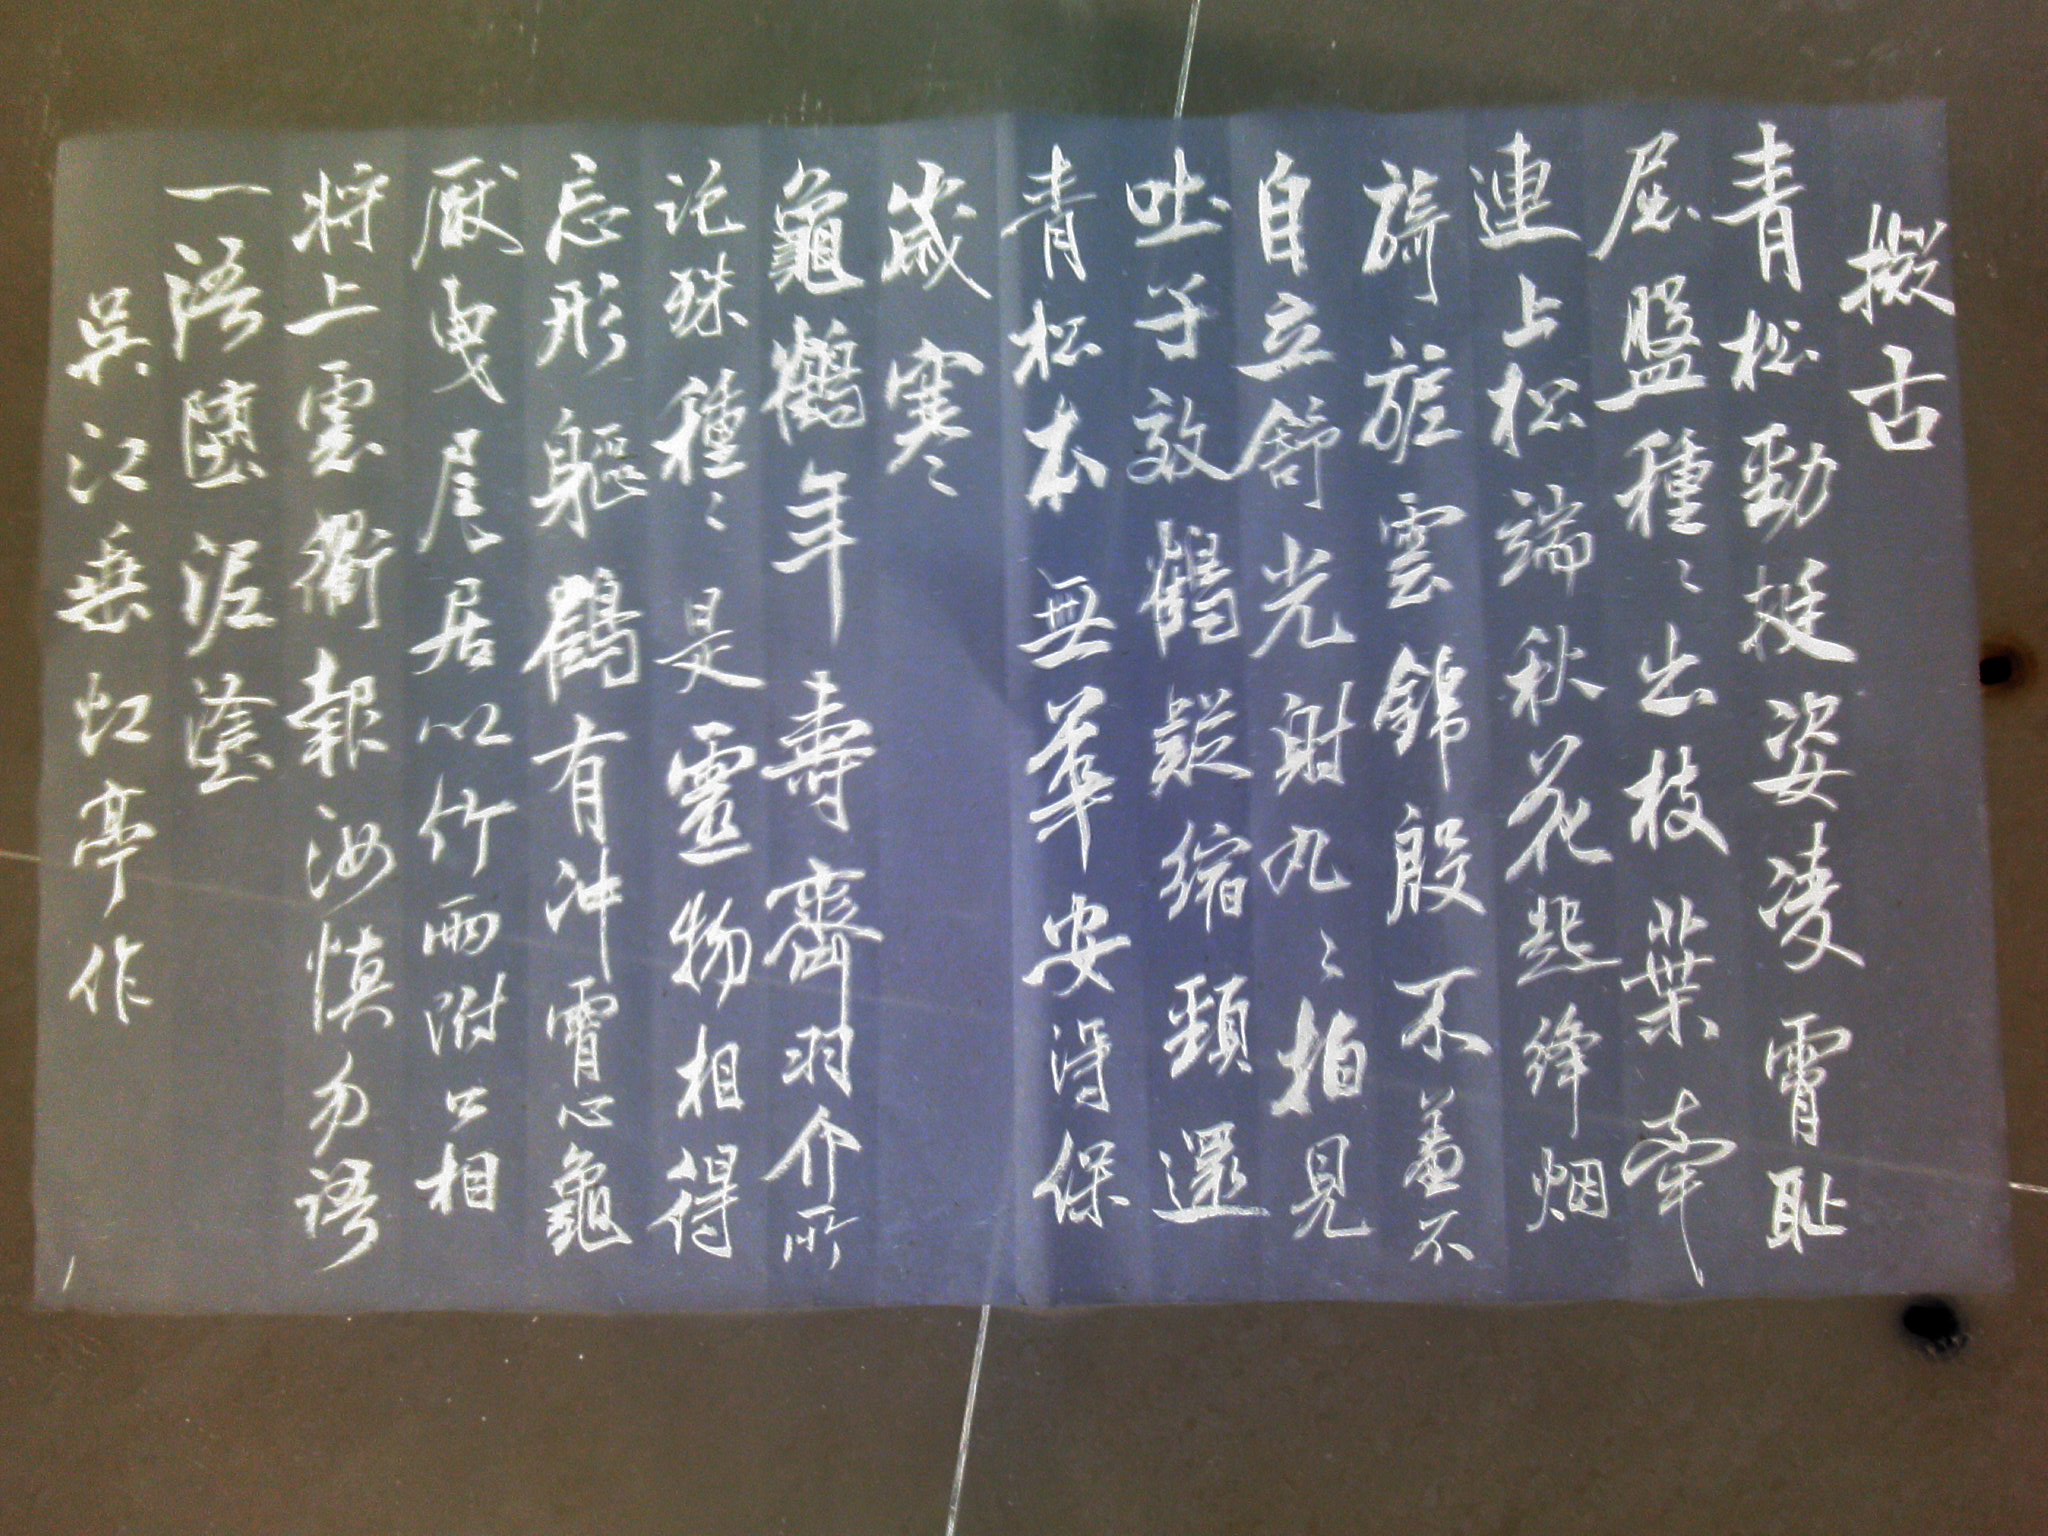 擬古
青松勁挺姿凌霄恥
屈盤種々出枝葉牽
連上松端秋花起絳烟
旖旎雲錦殷不羞不
自立舒光射丸々柏見
吐子效鶴疑縮頸還
青松本無華安得保
歲寒々
龜鶴年壽齊羽介所
託殊種々是靈物相得
忘形軀鶴有沖霄心龜
厭曳尾居以竹兩附口相
將上雲衢報汝慎勿語
一語墮泥塗
吳江垂虹亭作